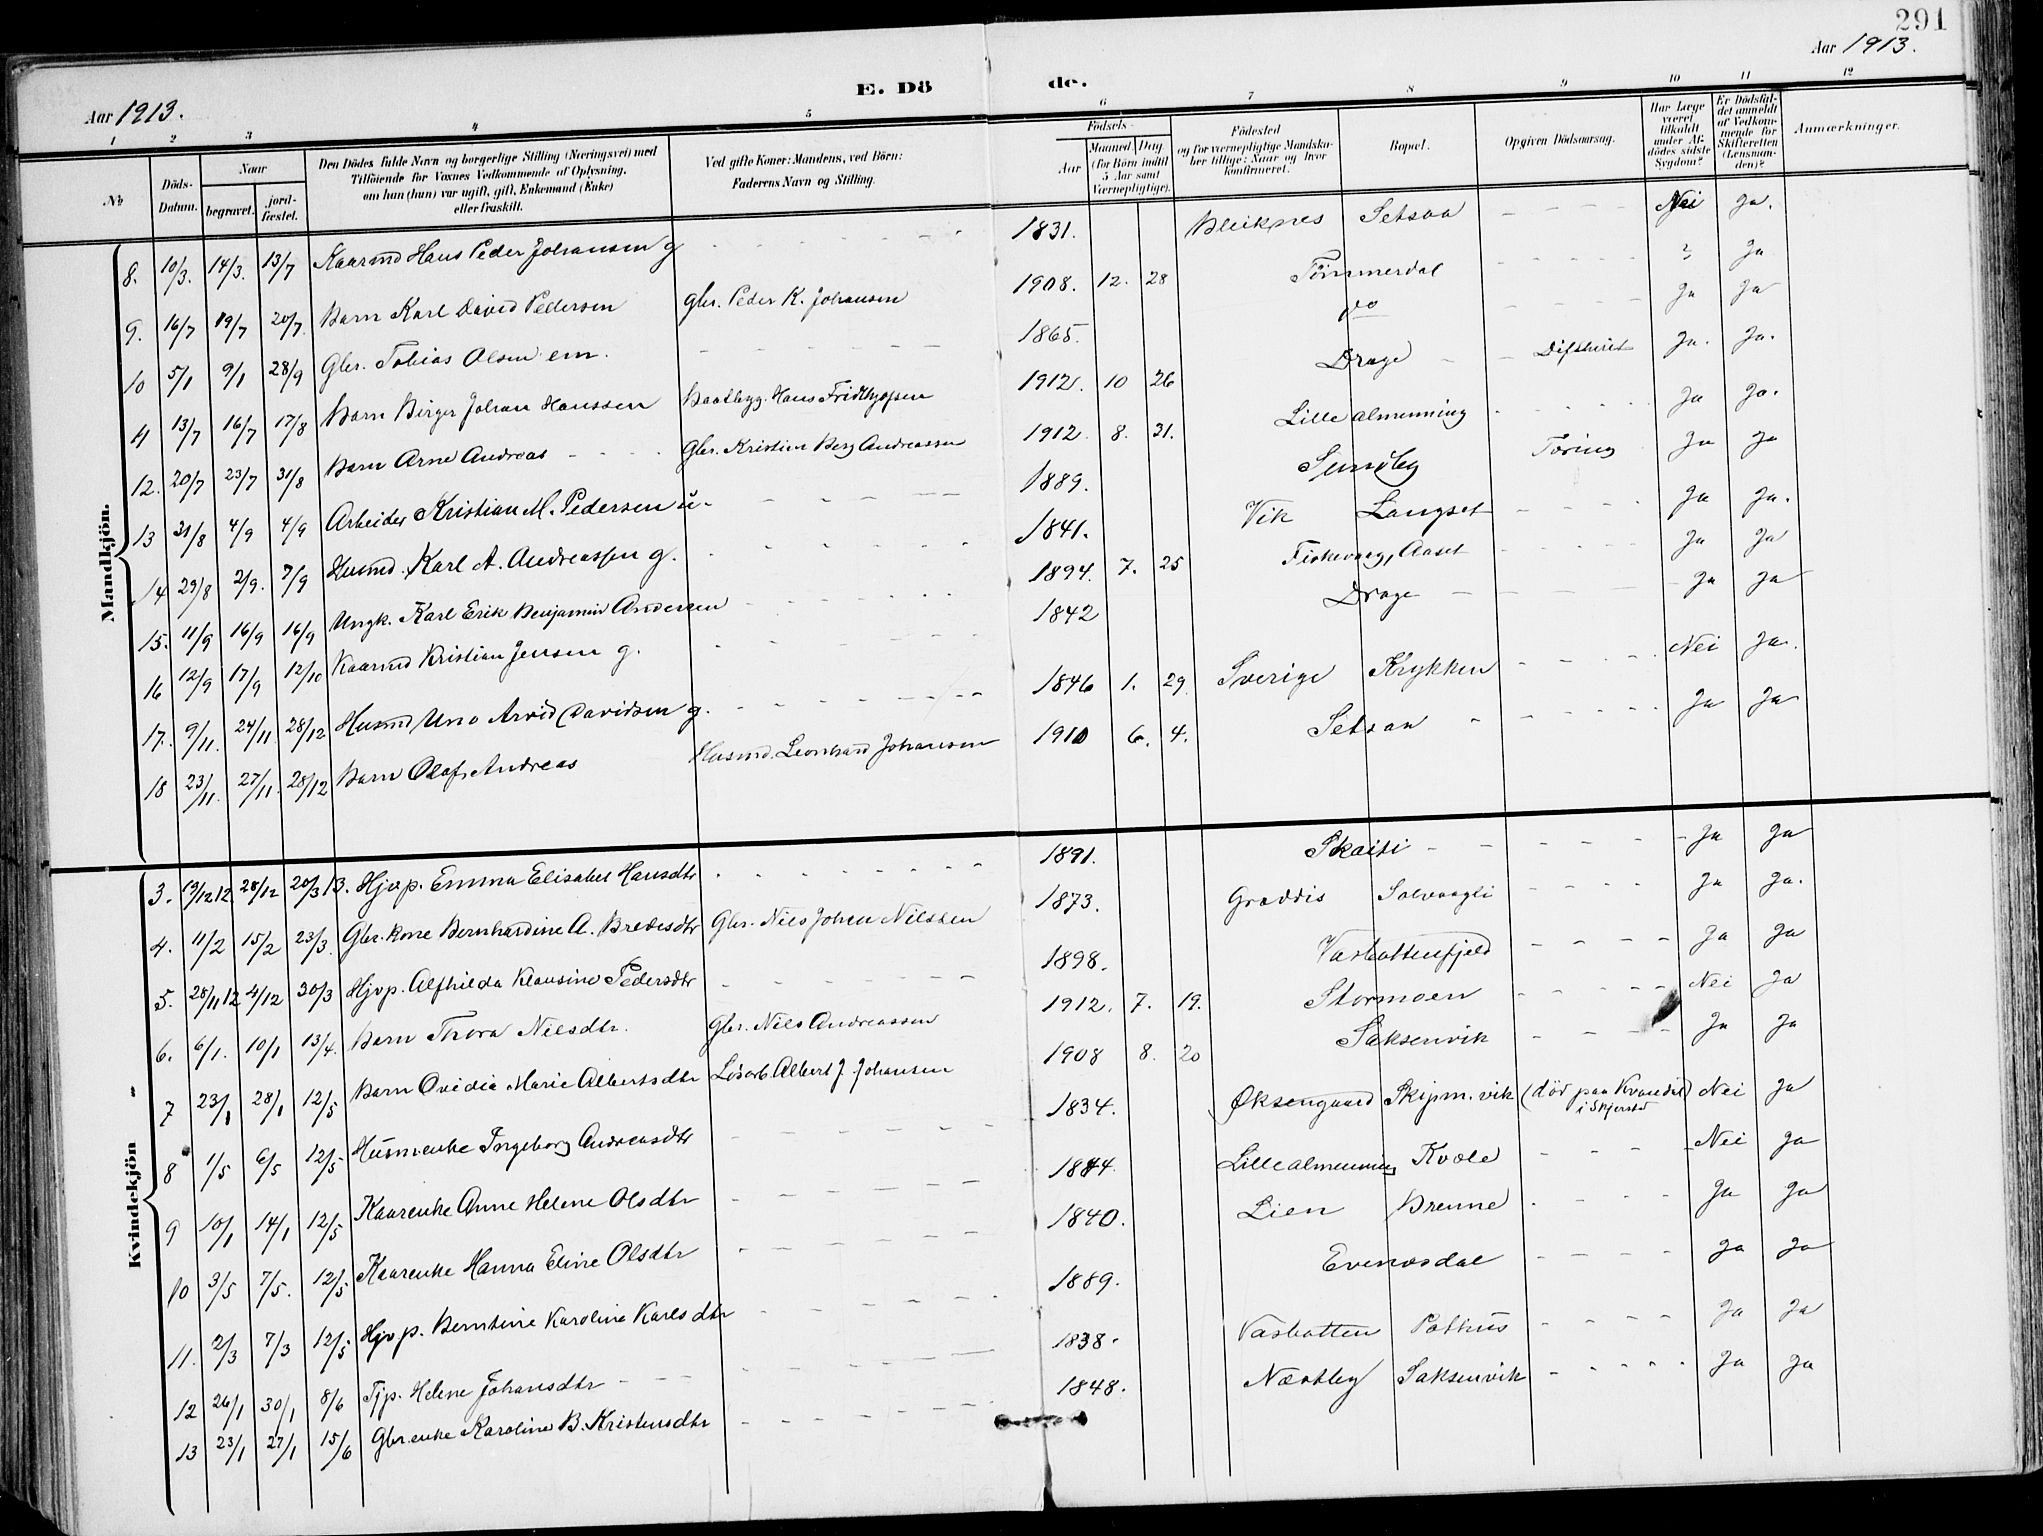 291
Aar 1913.
E. Dö
de.
Aar 1913.
1 2 3 4 5 6 7 8 9 10 11 12
No
Döds-Datum.
Naar
begravet.
jord-fæstet.
Den Dödes fulde Navn og borgerlige Stilling (Næringsvei) med
Tilföiende for Voxnes Vedkommende af Oplysning,
om han (hun) var ugift, gift, Enkemand (Enke)
eller fraskilt.
Ved gifte Koner: Mandens, ved Börn:
Faderens Navn og Stilling.
Födsels-
Aar
Maaned. Dag.
(for Börn indtil
5 Aar samt
Værnepligtige).
Födested
og for værnepligtige Mandska-
ber tillige: Naar og hvor
konfirmeret.
Bopæl.
Opgiven Dödsaarsag.
Har Læge
været
tilkaldt
under Af-
dödes sidste
Sygdom?
Er Dödsfal-
det anmeldt
af Vedkom-
mende for
Skifteretten
(Lensman-
den)?
Anmærkninger.
Mandkjön.
8. 10/3. 14/3. 13/7 Kaarmd Hans Peder Johansen g - - - 1831. Bleiknes Setsaa - - - - Nei Ja.
9. 16/7 19/7 20/7. Barn Karl David Pedersen Gbr. Peder K. Johansen 1908. 12. 28 Tømmerdal - - - - ? Ja
10 5/1 9/1 28/9 Gbr. Tobias Olsen em. - - - 1865. do - - - - Ja Ja
11 13/7 16/7 17/8 Barn Birger Johan Hanssen Baatbyg. Hans Fridthjofsen 1912. 10 26 Drage - - Diftherit Ja. Ja.
12. 20/7 23/7 31/8 Barn Arne Andreas - - - Gbr. Kristian Berg Andreassen 1912. 8. 31. Lillealmenning - - - - Ja Ja.
13 31/8 4/9 4/9 Arbeider Kristian M. Pedersen u. - - - 1889. Sundby Tæring Ja Ja
14 29/8 2/9. 7/9 Husmd. Karl A. Andreassen g. - - - 1841. Vik Langset - - - - Ja Ja.
15. 11/9 16/9 16/9 Ungk. Karl Erik Benjamin Andersen - - - 1894. 7. 25 Fiskevaag, Aaset - - - - Ja Ja
16 12/9 17/9 12/10 Kaarmd Kristian Jensen g. - - - 1842 Drage - - - - Ja Ja
17. 9/11. 24/11 28/12 Husmd Uno Arvid Davidsen g. - - - 1846 1. 29. Sverige Krykken - - - - Nei Ja.
18 23/11. 27/11. 28/12 Barn Olaf Andreas Husmd. Leonhard Johansen 1910 6. 4. Setsaa - - - - Ja Ja
Kvindekjön
3. 19/12 12. 28/12 20/3 13. Hjvp. Emma Elisabet Hansdtr - - - 1891. Skaiti - - - - Ja Ja
4. 11/2 15/2 23/3. Gbr. kone Bernhardine A. Bredesdtr Gbr. Nils Johan Nilssen 1873. Graddis Solvaagli - - - - Ja Ja.
5. 28/11 12 4/12 30/3 Hjvp. Alfhilda Klausine Pedersdtr - - - 1898. Vasbottenfjeld - - - - Ja Ja
6. 6/1. 10/1 13/4. Barn Thora Nilsdtr. Gbr. Nils Andreassen 1912. 7. 19. Stormoen - - - - Nei Ja
7 23/1 28/1 12/5 Barn Ovidia Marie Albertsdtr Løsarb. Albert J. Johansen 1908 8. 20 Saksenvik - - - - Ja Ja
8 1/5 6/5 12/5 Husm.enke Ingeborg Andreasdtr - - - 1834. Øksengaard Skipm.vik (død paa Kvandal i Skjerstad) Nei Ja
9 10/1 14/1 12/5 Kaarenke Anne Helene Olsdtr - - - 1844. Lillealmenning Kvæle - - - Nei Ja
10 3/5 7/5. 12/5 Kaarenke Hanna Eline Olsdtr - - - 1840. Lien Brenne - - - - Ja Ja
11. 2/3 7/3 12/5 Hjvp. Berntine Karoline Karlsdtr - - - 1889. Evenesdal - - - - Ja Ja
12 26/1 30/1 8/6 Tjp. Helene Johansdtr - - - 1838. Vasbotten Pothus - - - - Ja Ja
13 23/1 27/1 15/6 Gbr.enke Karoline B. Kristensdtr - - - 1848. Næstby Saksenvik - - - - Ja Ja